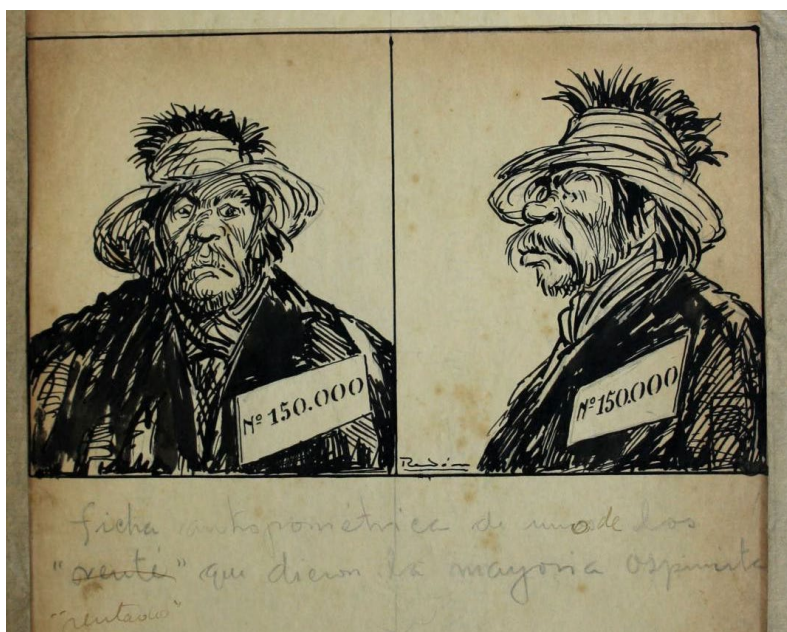 Nº 150.000
Nº 150.000
Rendón
ficha antropométrica de uno de los
" " que dieron la mayoria ospinista
"rentado"